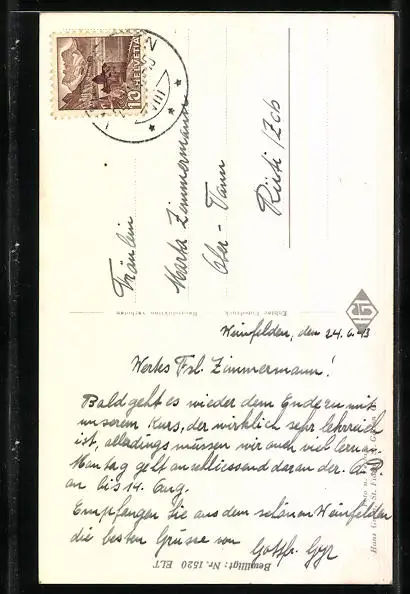 HELVETIA
10
VIII
Fräulein
Marta Zimmermann
Ober-Tann
Rüti/Zch
Echter Fotodruck
Reproduktion verboten
Weinfelden, den 24.6.43
Wertes Frl. Zimmermann!
Bald geht es wieder dem Ende zu mit
unserem Kurs, der wirklich sehr lehrreich
ist, allerdings müssen wir auch viel lernen.
Montag geht anschliessend daran der
an bis 14. Aug.
Empfangen Sie aus dem schönen Weinfelden
die besten Grüsse von Gottfr. Gyr
Bewilligt: Nr. 1520 ELT